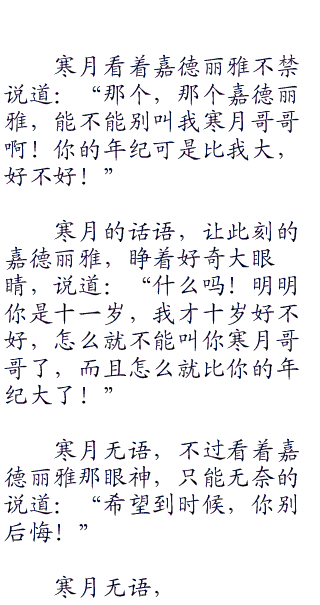 寒月看着嘉德丽雅不禁
说道：“那个，那个嘉德丽
雅，能不能别叫我寒月哥哥
啊！你的年纪可是比我大，
好不好！”
寒月的话语，让此刻的
嘉德丽雅，睁着好奇大眼
睛，说道：“什么吗！明明
你是十一岁，我才十岁好不
好，怎么就不能叫你寒月哥
哥了，而且怎么就比你的年
纪大了！”
寒月无语，不过看着嘉
德丽雅那眼神，只能无奈的
说道：“希望到时候，你别
后悔！”
寒月无语，